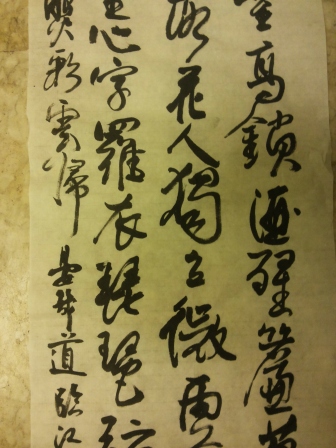 臺高鎖酒醒簾幕
落花人獨立微雨
重心字羅衣琵琶弦
照彩雲歸 晏幾道臨江